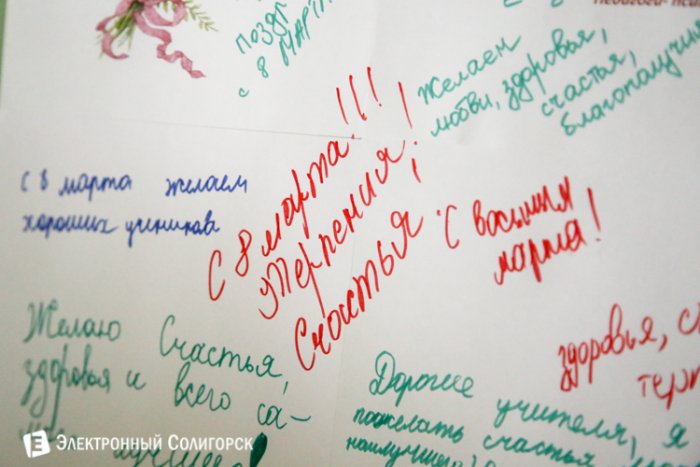 позд
с 8 МАРТ
Желаем
любви, здоровья,
счастья,
благополучия
С 8 марта!!!
Терпения!
Счастья!
с 8 марта желаем
хороших учеников
С восьмым
марта!
здоровья, с
терп
Желаю Счастья,
здоровья и всего са-
Дорогие учителя, я
пожелать счастья
наилучшего
Электронный Солигорск